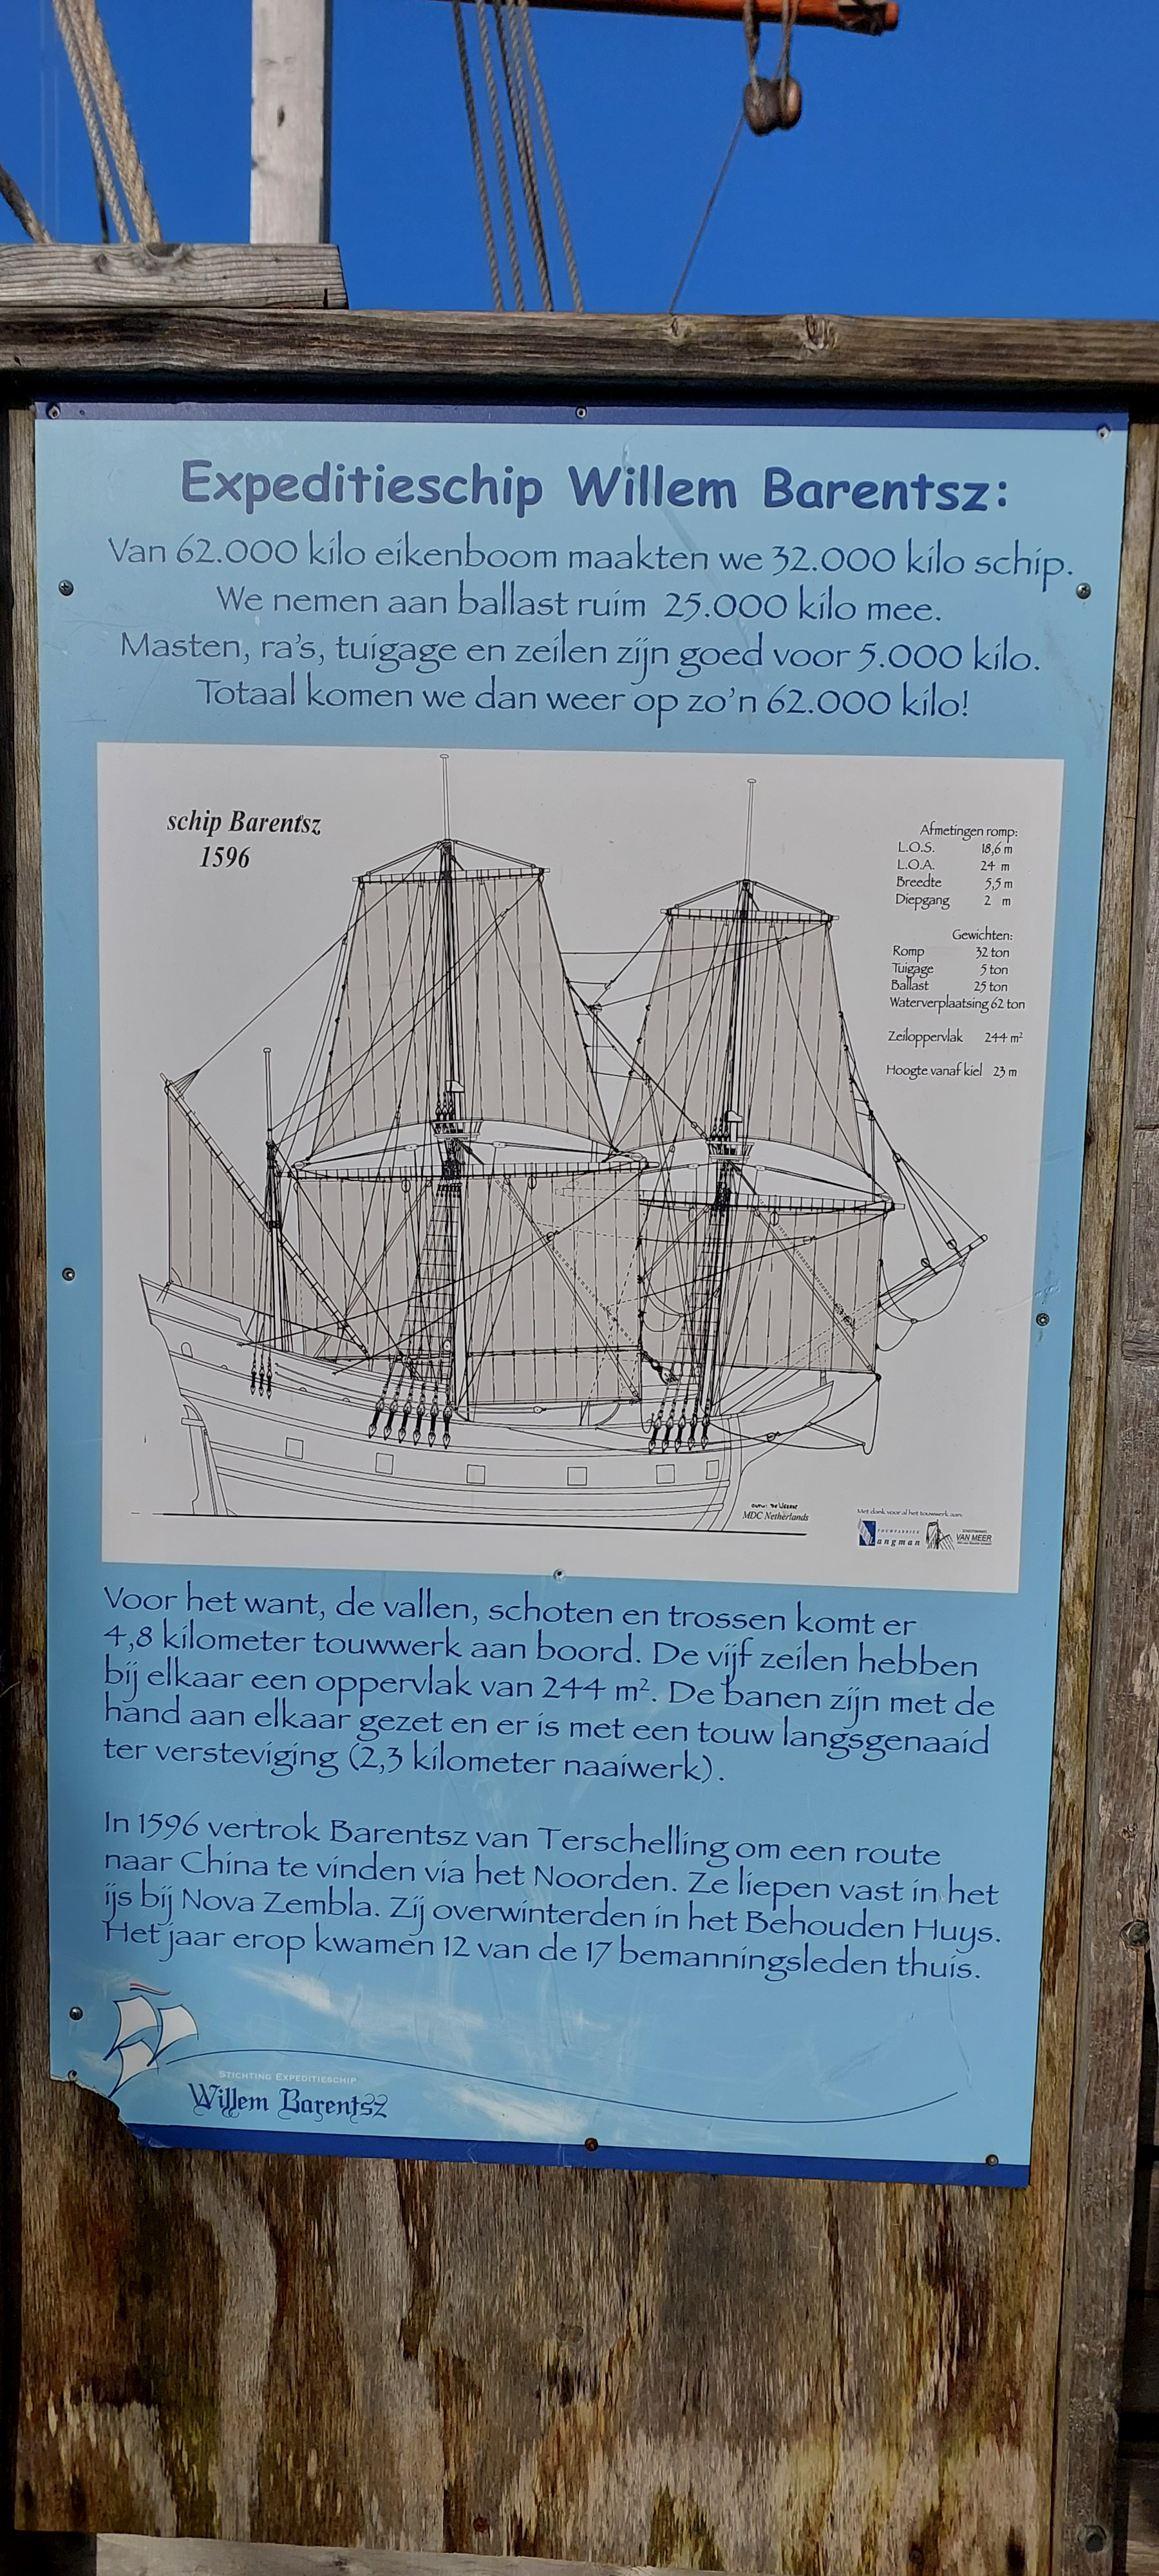 Expeditieschip Willem Barentsz:
Van 62.000 kilo eikenboom maakten we 32.000 kilo schip.
We nemen aan ballast ruim 25.000 kilo mee.
Masten, ra's, tuigage en zeilen zijn goed voor 5.000 kilo.
Totaal komen we dan weer op zo'n 62.000 kilo!
schip Barentsz
1596
Afmetingen romp:
L.O.S. 18,6 m
L.O.A. 24 m
Breedte 5,5 m
Diepgang 2 m
Gewichten:
Romp 32 ton
Tuigage 5 ton
Ballast 25 ton
Waterverplaatsing 62 ton
Zeiloppervlak 244 m²
Hoogte vanaf kiel 23 m
MDC Netherlands
Met dank voor al het touwwerk aan:
TOUWFABRIEK
Langman
VAN MEER
Voor het want, de vallen, schoten en trossen komt er
4,8 kilometer touwwerk aan boord. De vijf zeilen hebben
bij elkaar een oppervlak van 244 m². De banen zijn met de
hand aan elkaar gezet en er is met een touw langsgenaaid
ter versteviging (2,3 kilometer naaiwerk).
In 1596 vertrok Barentsz van Terschelling om een route
naar China te vinden via het Noorden. Ze liepen vast in het
ijs bij Nova Zembla. Zij overwinterden in het Behouden Huys.
Het jaar erop kwamen 12 van de 17 bemanningsleden thuis.
STICHTING EXPEDITIESCHIP
Willem Barentsz